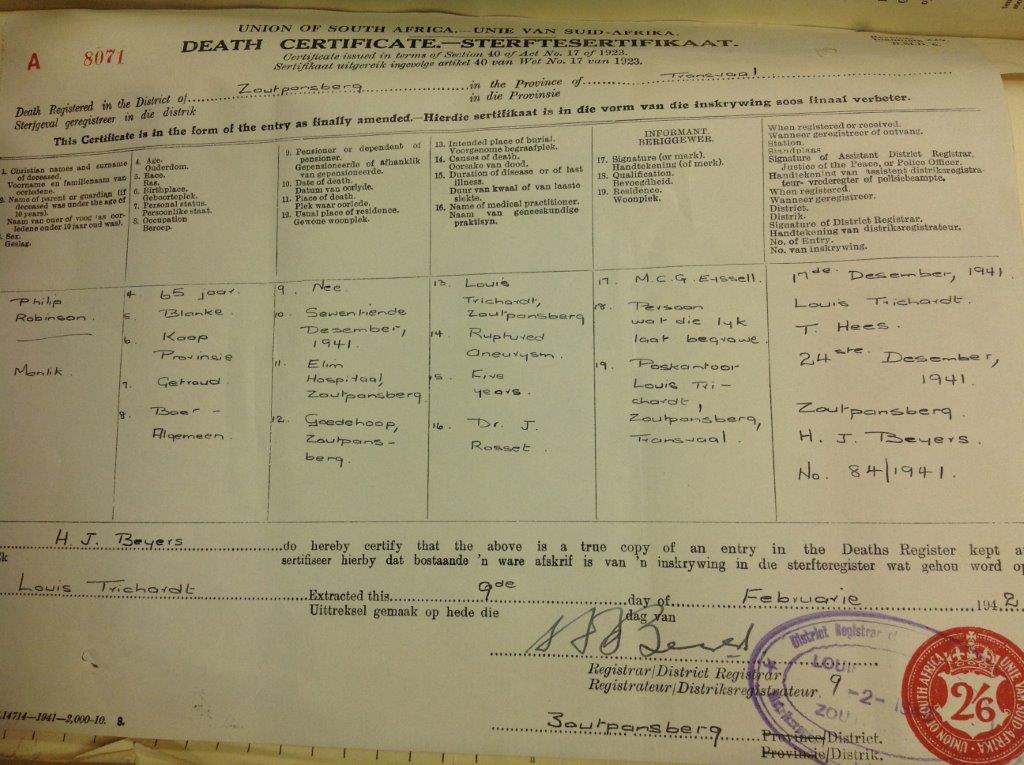 UNION OF SOUTH AFRICA.—UNIE VAN SUID-AFRIKA.
DEATH CERTIFICATE.—STERFTESERTIFIKAAT.
A 8071
Certificate issued in terms of Section 40 of Act No. 17 of 1923.
Sertifikaat uitgereik ingevolge artikel 40 van Wet No. 17 van 1923.
Death Registered in the District of Zoutpansberg in the Province of Transvaal
Sterfgeval geregistreer in die distrik in die Provinsie
This Certificate is in the form of the entry as finally amended.—Hierdie sertifikaat is in die vorm van die inskrywing soos finaal verbeter.
1. Christian names and surname
of deceased.
Voorname en familienaam van
oorledene.
2. Name of parent or guardian (if
deceased was under the age of
10 years).
Naam van ouer of voog (as oor-
ledene onder 10 jaar oud was).
Sex.
Geslag.
4. Age.
Ouderdom.
5. Race.
Ras.
6. Birthplace.
Geboorteplek.
7. Personal status.
Persoonlike staat.
8. Occupation
Beroep.
9. Pensioner or dependent of
pensioner.
Gepensioeneerde of afhanklik
van gepensioeneerde.
10. Date of death.
Datum van oorlyde.
11. Place of death.
Plek waar oorlede.
12. Usual place of residence.
Gewone woonplek.
13. Intended place of burial.
Voorgenome begraafplek.
14. Causes of death.
Oorsake van dood.
15. Duration of disease or of last
illness.
Duur van kwaal of van laaste
siekte.
16. Name of medical practitioner.
Naam van geneeskundige
praktisyn.
INFORMANT.
BERIGGEWER.
17. Signature (or mark).
Handtekening (of merk).
18. Qualification.
Bevoegdheid.
19. Residence.
Woonplek.
When registered or received.
Wanneer geregistreer of ontvang.
Station.
Standplaas
Signature of Assistant District Registrar,
Justice of the Peace, or Police Officer.
Handtekening van assistent distriksregistra-
teur- vrederegter of polisiebeampte.
When registered.
Wanneer geregistreer.
District.
Distrik.
Signature of District Registrar.
Handtekening van distriksregistrateur.
No. of Entry.
No. van inskrywing.
Philip
Robinson.
Manlik.
4. 65 jaar.
5. Blanke.
6. Kaap
Provinsie
7. Getroud.
8. Boer —
Algemeen.
9. Nee.
10. Sewentiende
Desember,
1941.
11. Elim
Hospitaal,
Zoutpansberg.
12. Goedehoop,
Zoutpans-
berg.
13. Louis
Trichardt,
Zoutpansberg
14. Ruptured
Aneurysm.
15. Five
years.
16. Dr. J.
Rosset.
17. M.C.G. Eyssell.
18. Persoon
wat die lyk
laat begrawe.
19. Poskantoor
Louis Tri-
chardt,
Zoutpansberg,
Transvaal.
17de. Desember, 1941.
Louis Trichardt.
T. Hees.
24ste. Desember,
1941.
Zoutpansberg.
H. J. Beyers.
No. 84/1941.
H. J. Beyers do hereby certify that the above is a true copy of an entry in the Deaths Register kept
sertifiseer hierby dat bostaande 'n ware afskrif is van 'n inskrywing in die sterfteregister wat gehou word
Louis Trichardt Extracted this 9de day of Februarie 1942
Uittreksel gemaak op hede die dag van
Registrar/District Registrar
Registrateur/Distriksregistrateur.
District Registrar
LOUIS
9 -2- 1
ZOUT
UNION OF SOUTH AFRICA · UNIE VAN SUID-AFRIKA
2/6
Zoutpansberg
Province/District.
Provinsie/Distrik.
14714—1941—2,000-10. S.